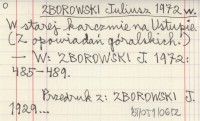 ZBOROWSKI Juliusz 1972 w.
W starej karczmie na Ustupie
(Z opowiadań góralskich.)
— W: ZBOROWSKI J. 1972:
485-489.
Przedruk z: ZBOROWSKI J.
1929...